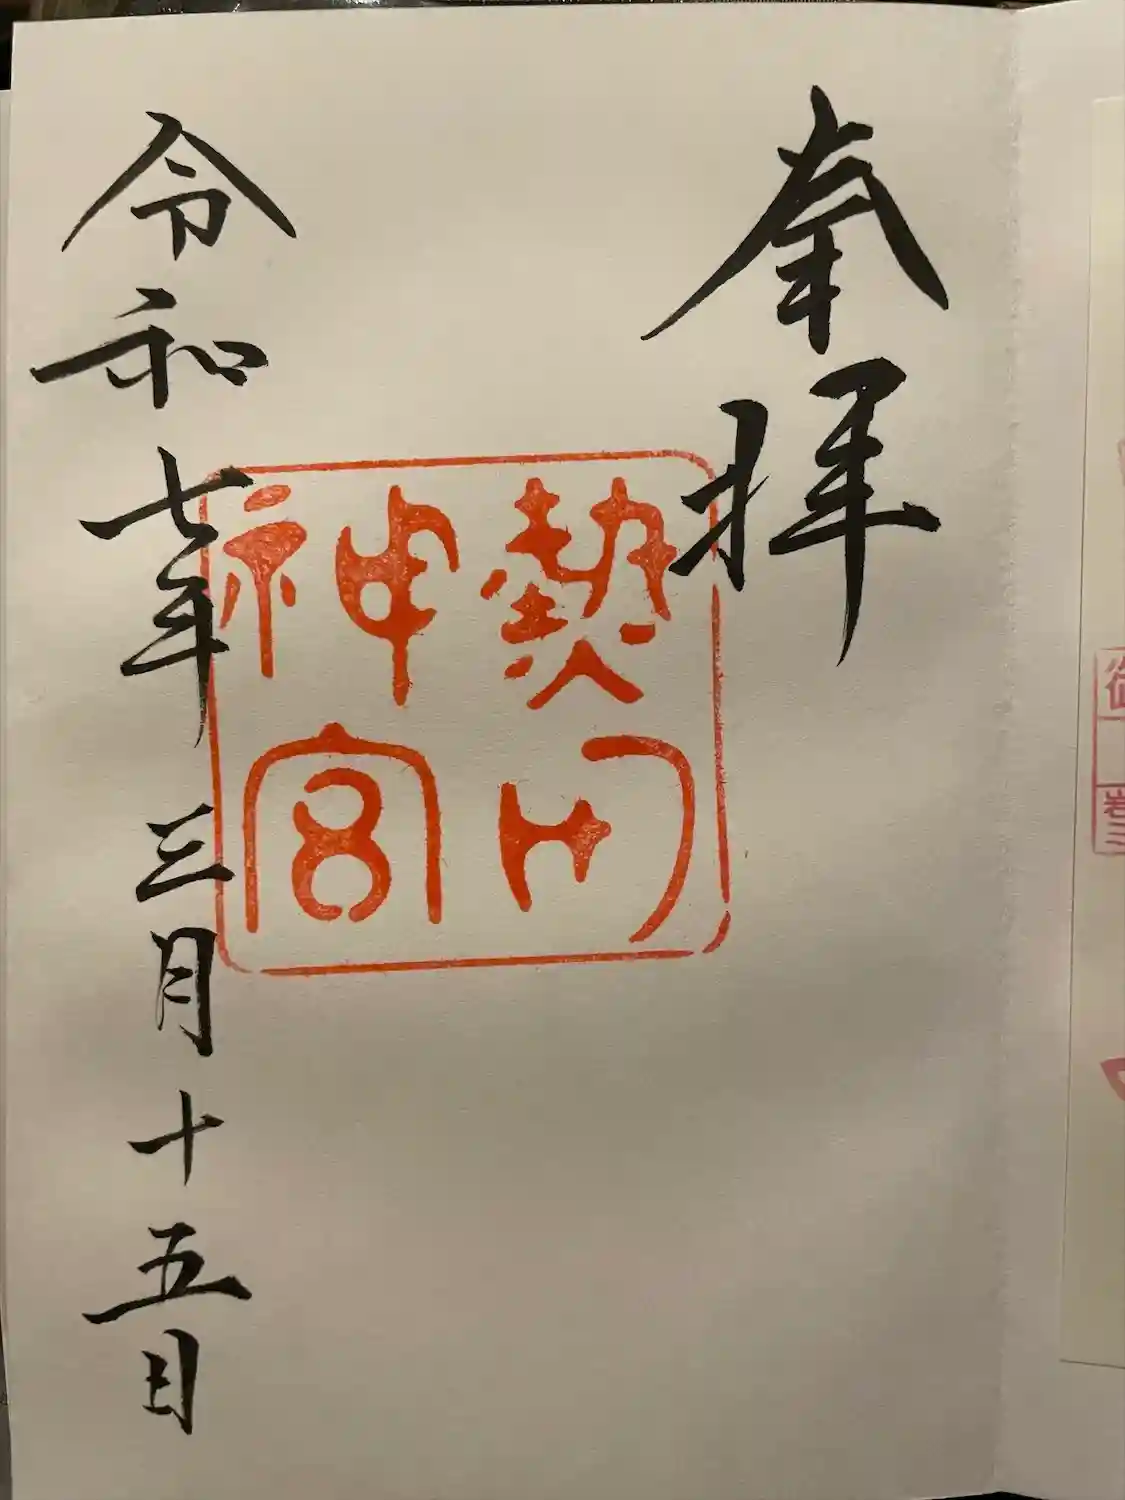 奉拝
熱田
神宮
令和七年 三月十五日